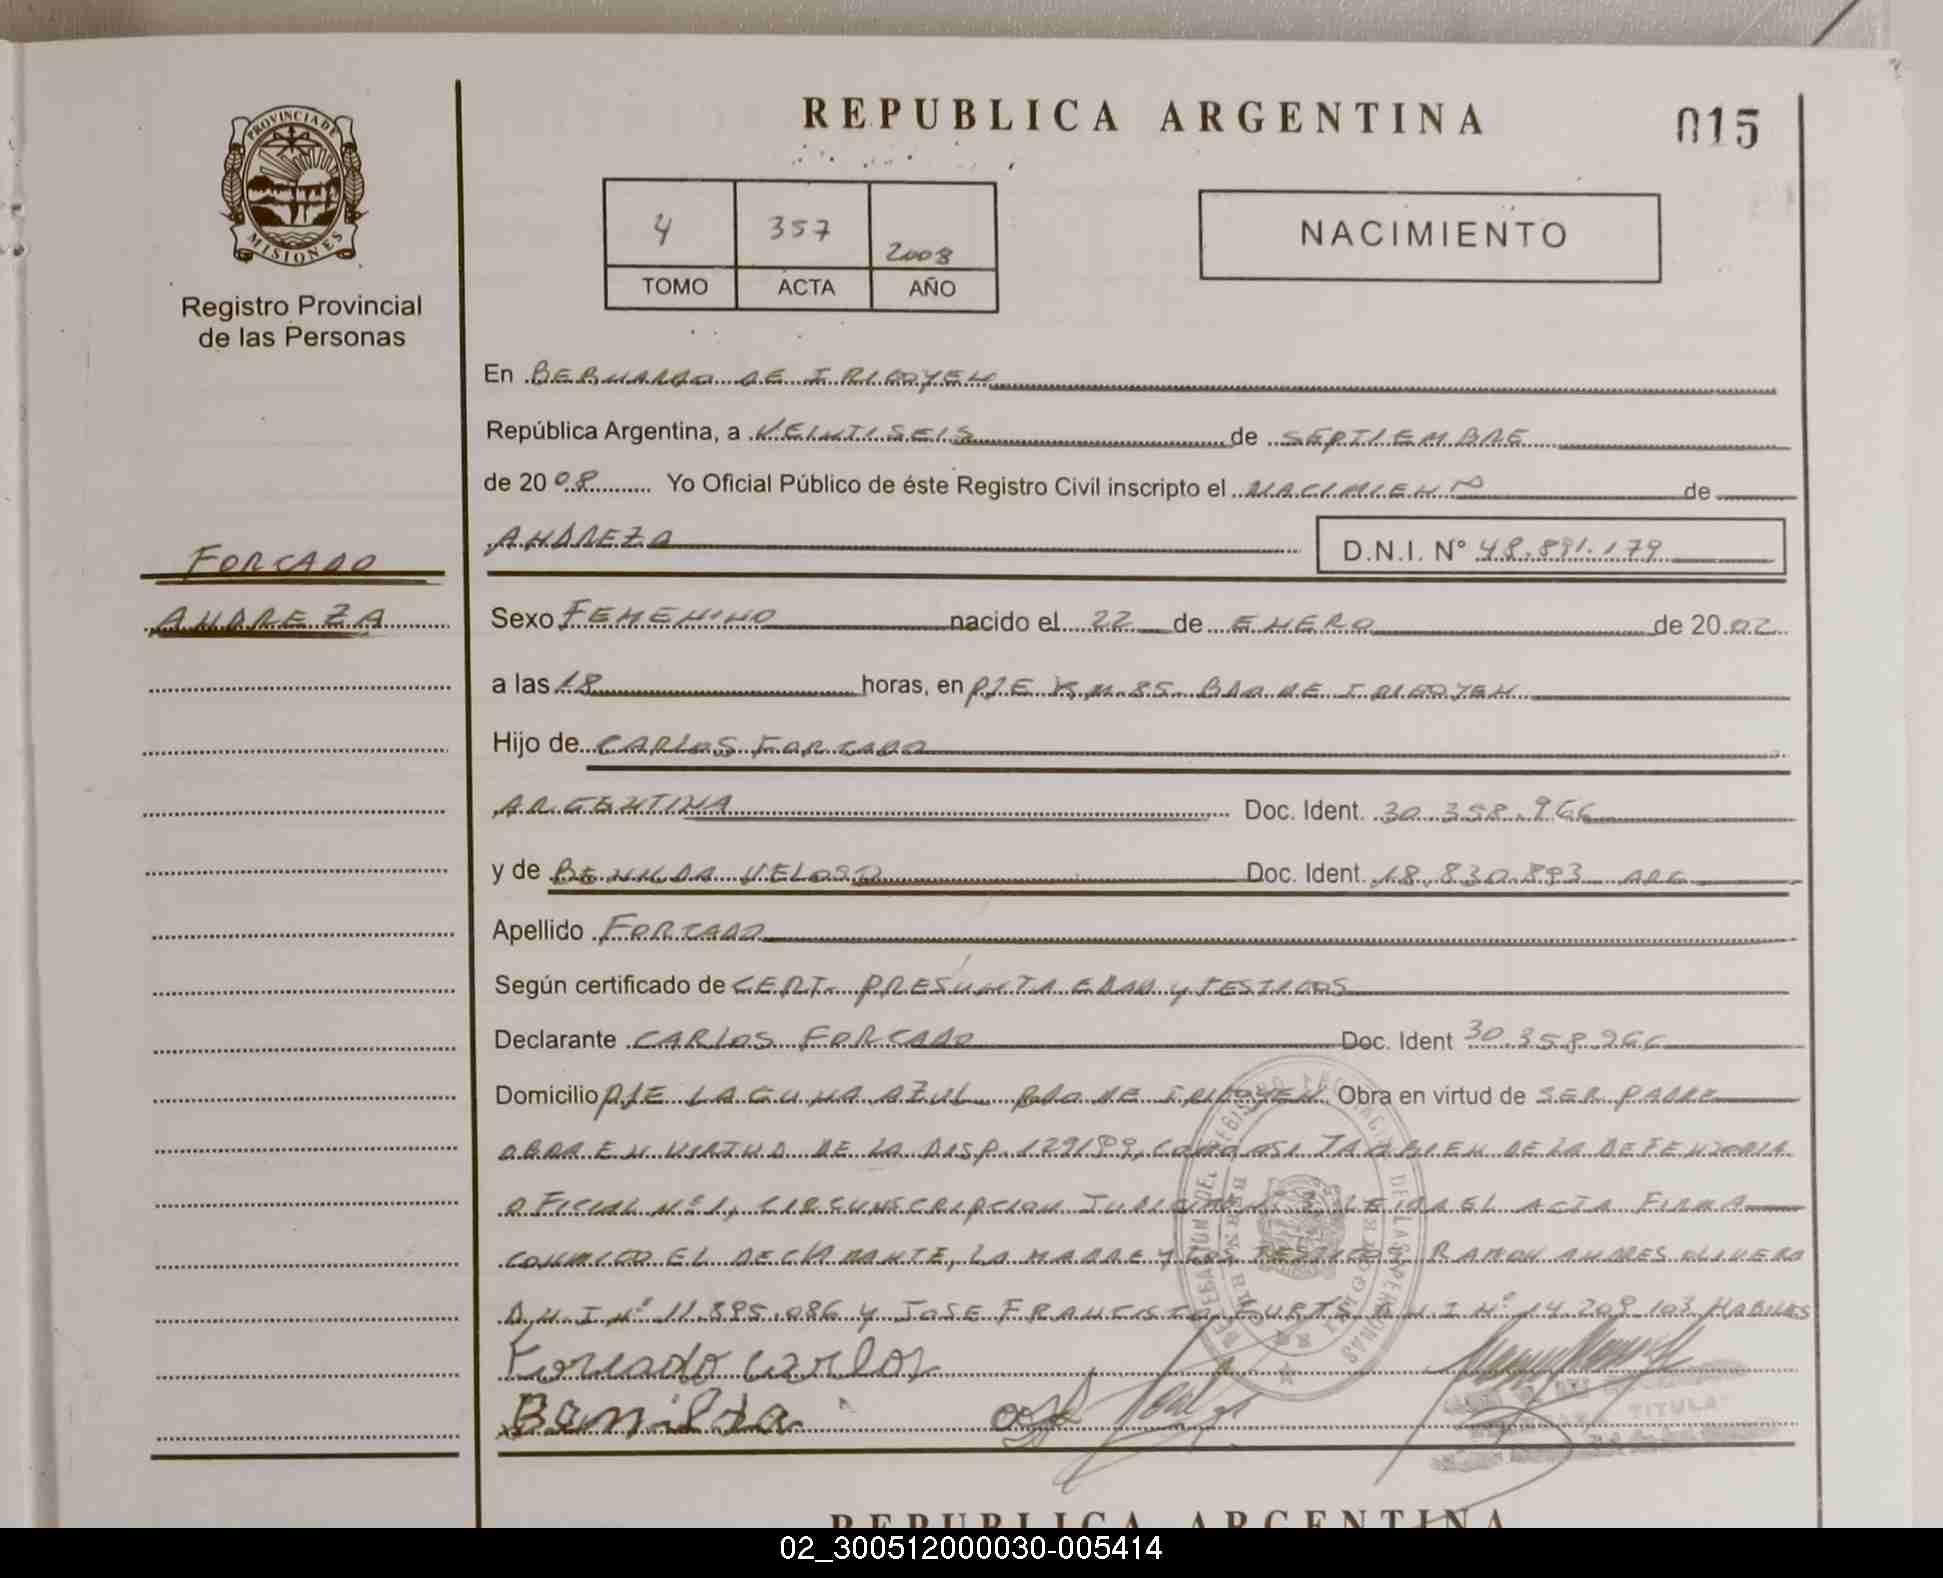 PROVINCIA DE
MISIONES
Registro Provincial
de las Personas
FORCADO
ANDREZA
REPUBLICA ARGENTINA
015
4 357 2008
TOMO ACTA AÑO
NACIMIENTO
En BERNARDO DE IRIGOYEN
República Argentina, a VEINTISEIS de SEPTIEMBRE
de 2008 Yo Oficial Público de éste Registro Civil inscripto el NACIMIENTO de
ANDREZA
D.N.I. Nº 48.891.179
Sexo FEMENINO nacido el 22 de ENERO de 20 02
a las 18 horas, en PJE KM. 85 BDO DE IRIGOYEN
Hijo de CARLOS FORCADO
ARGENTINA Doc. Ident. 30.358.966
y de BENILDA VELOSO Doc. Ident. 18.830.893 ARG
Apellido FORCADO
Según certificado de CERT. PRESUNTA EDAD y TESTIGOS
Declarante CARLOS FORCADO Doc. Ident 30.358.966
Domicilio PJE LAGUNA AZUL BDO DE IRIGOYEN Obra en virtud de SER PADRE
OBRA EN VIRTUD DE LA DISP. 129/99, COMO ASI TAMBIEN DE LA DEFENSORIA
OFICIAL Nº 1, CIRCUNSCRIPCION JUDICIAL LEIDA EL ACTA FIRMA
CONMIGO EL DECLARANTE, LA MADRE Y LOS TESTIGOS RAMON ANDRES OLIVERA
D.N.I Nº 11.895.086 Y JOSE FRANCISCO D.N.I Nº 14.209.103 HABILES
Forcado Carlos
Benilda
TITULAR
REPUBLICA ARGENTINA
02_300512000030-005414